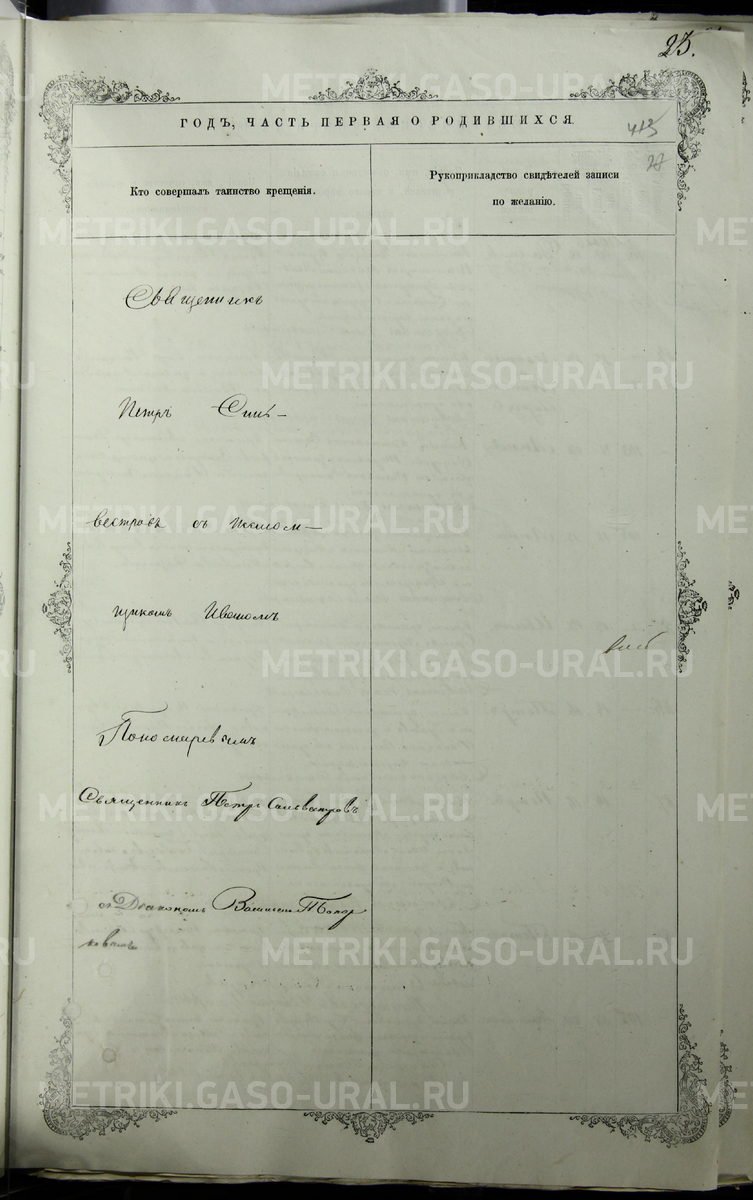 23.
ГОДЪ, ЧАСТЬ ПЕРВАЯ О РОДИВШИХСЯ
413
27
Кто совершалъ таинство крещенія.
Рукоприкладство свидѣтелей записи
по желанію.
Священникъ
Петръ Силь-
вестровъ съ псалом-
щикомъ Иваномъ
Пономаревымъ
Священникъ Петръ Сильвестровъ
съ Діакономъ Василіемъ Топор
ковымъ
METRIKI.GASO-URAL.RU